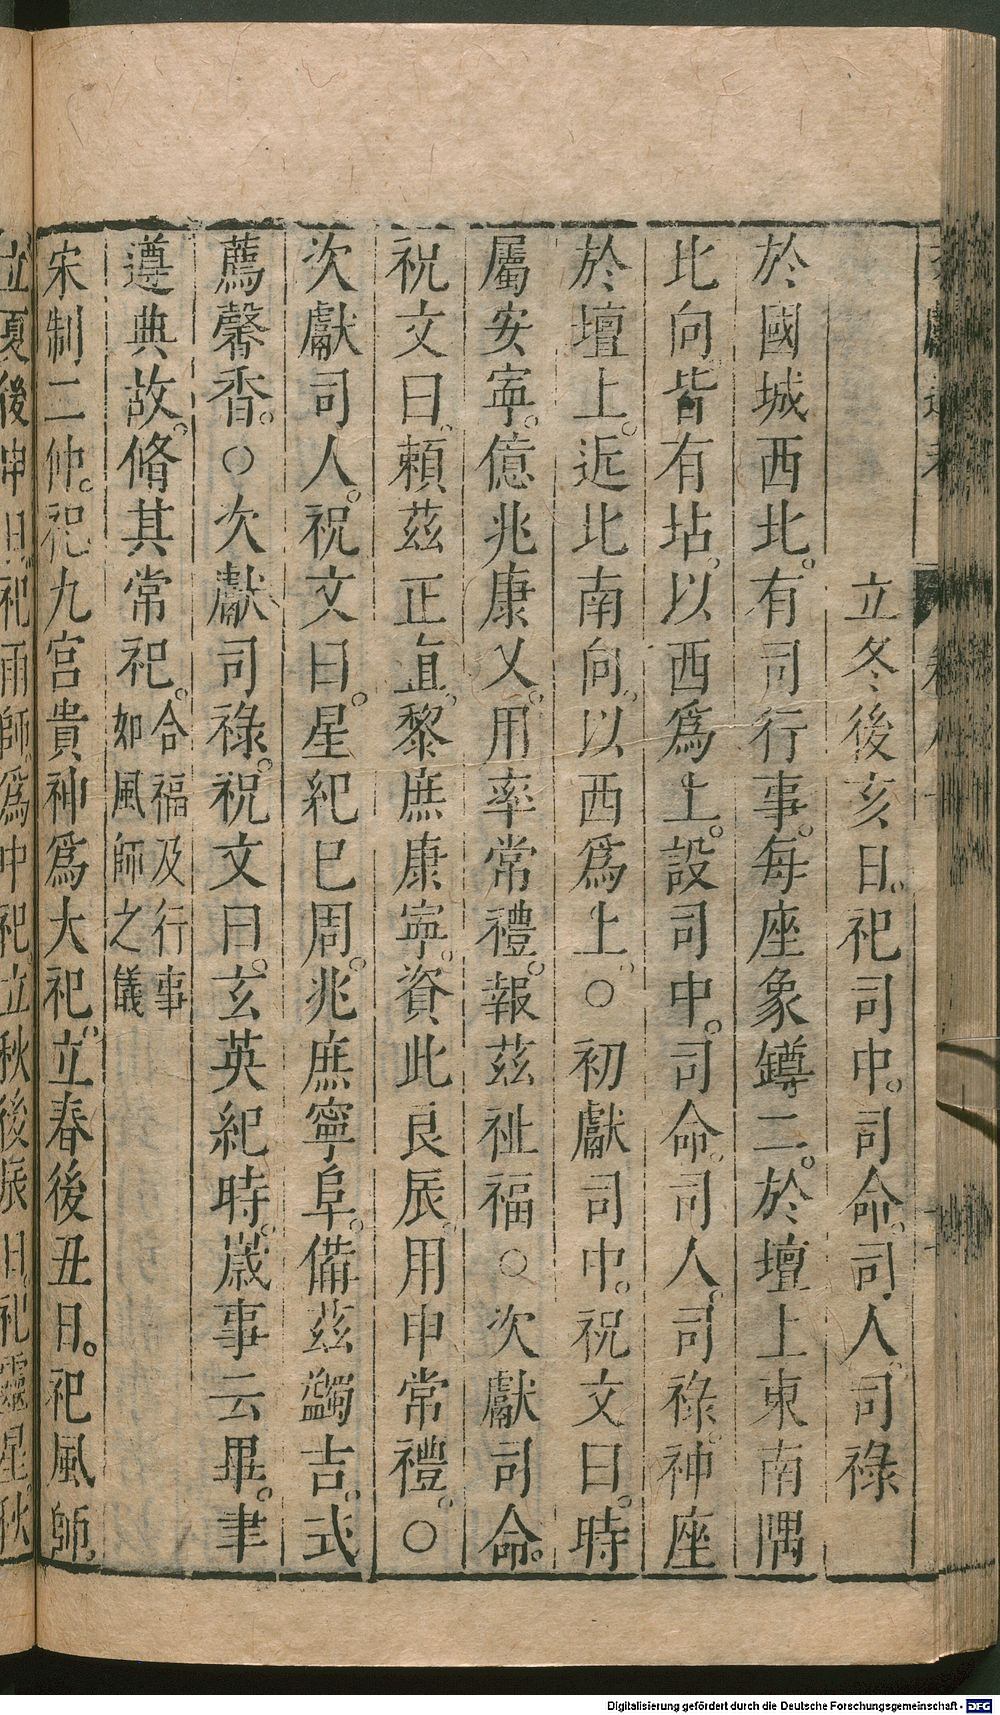 立冬後亥日。祀司中。司命。司人。司祿
於國城西北。有司行事。每座象鐏二。於壇上東南隅
北向。皆有坫。以西爲上。設司中。司命。司人。司祿。神座
於壇上。近北南向。以西爲上。○初獻司中。祝文曰。時
屬安寧。億兆康乂。用率常禮。報茲祉福○次獻司命。
祝文曰。頼茲正直。黎庶康寧。資此良辰。用申常禮。○
次獻司人。祝文曰。星紀巳周。兆庶寧阜。備茲蠲吉。式
薦馨香。○次獻司祿。祝文曰。玄英紀時。嵗事云畢。聿
遵典故。脩其常祀。合福及行事如風師之儀
宋制二仲。祀九宮貴神爲大祀。立春後丑日。祀風師。
立夏後申日。祀雨師爲中祀。立秋後辰日。祀靈星。秋
Digitalisierung gefördert durch die Deutsche Forschungsgemeinschaft - DFG